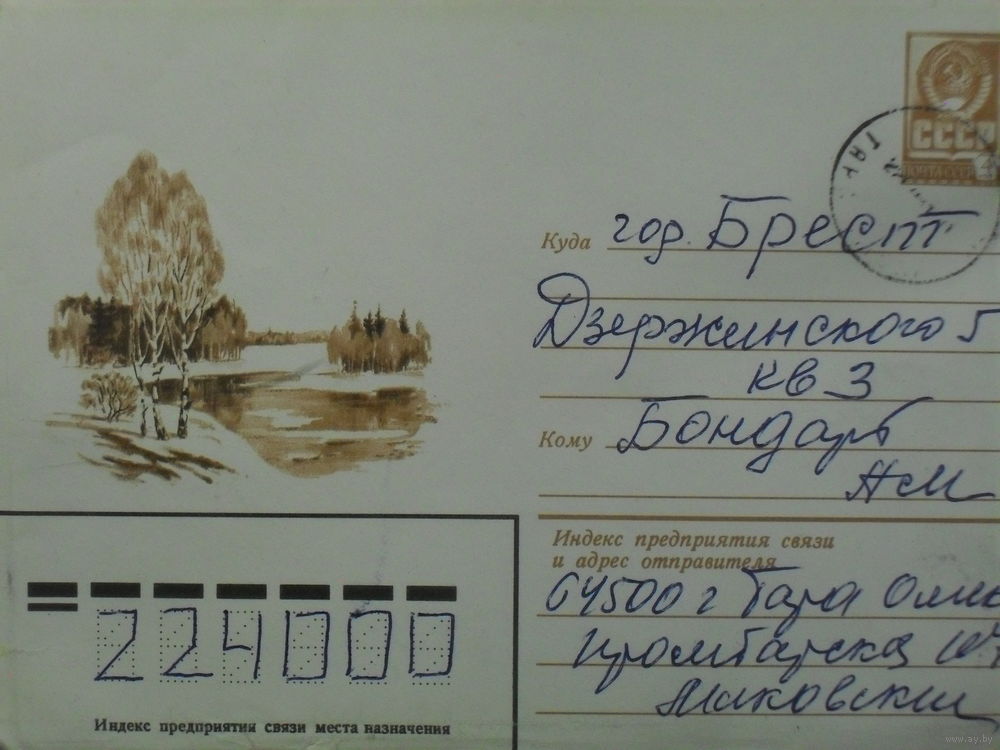 СССР
ПОЧТА СССР
4
ТАР
Куда год. Брест
Дзержинского 5
кв 3
Кому Бондарь
АМ
Индекс предприятия связи
и адрес отправителя
64500 г Тара Омс
Маковский
224000
Индекс предприятия связи места назначения
www.ay.by